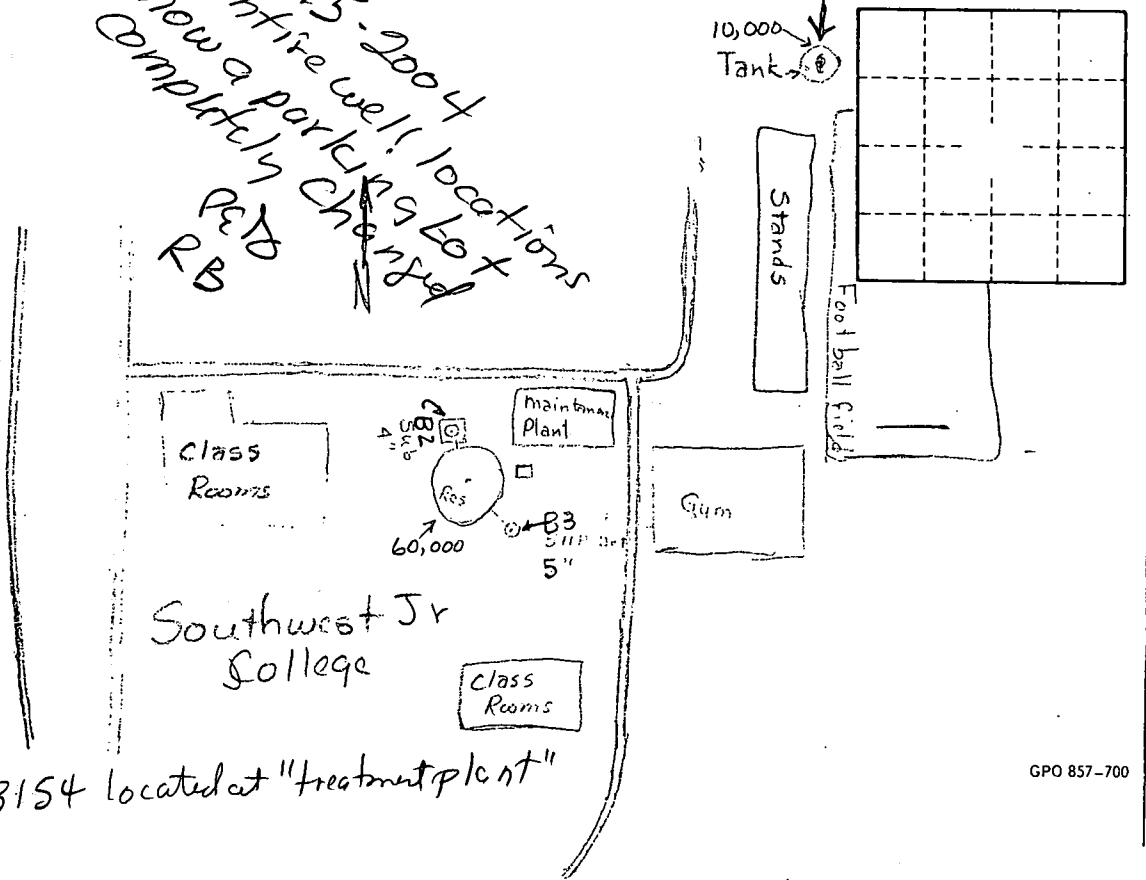 5-2004
entire well locations
now a parking lot
completely changed
RB
N
10,000
Tank
Stands
Football field
maintenanc
Plant
B2
Sub
4"
Class
Rooms
Res
60,000
B3
5"
Gum
Southwest Jr
College
Class
Rooms
B154 located at "treatment plant"
GPO 857-700